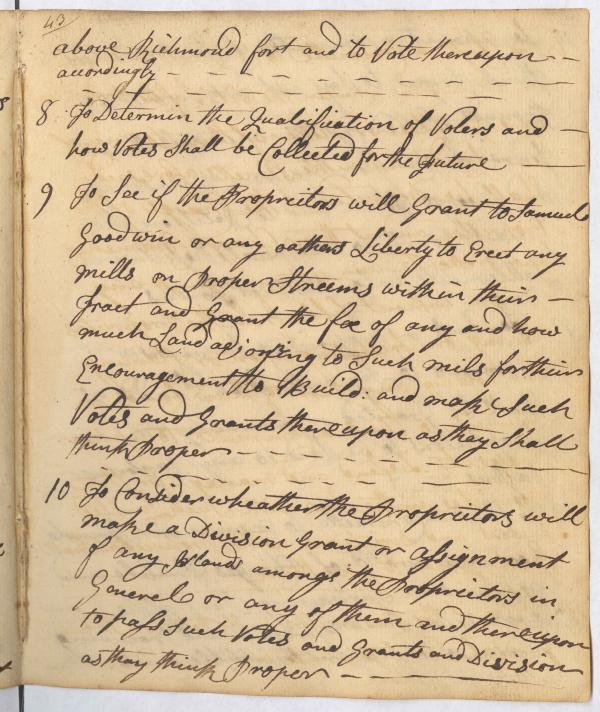 43
above Richmond fort and to Vote thereupon
acordingly
8 To Determin the Qualification of Voters and
how Votes Shall be Collected for the Future
9 To See if the Proprietors will Grant to Samuel
Goodwin or any oathers Liberty to Erect any
mills on Proper Streems within their
Tract and Grant the fee of any and how
much Land adjoining to Such mils for their
Encouragement to Build: and make Such
Votes and Grants thereupon as they Shall
think Proper
10 To Consider wheather the Proprietors will
make a Division Grant or assignment
of any Islands amongs the Proprietors in
Generel or any of them and thereupon
to pass Such Votes and Grants and Division
as thay think Proper